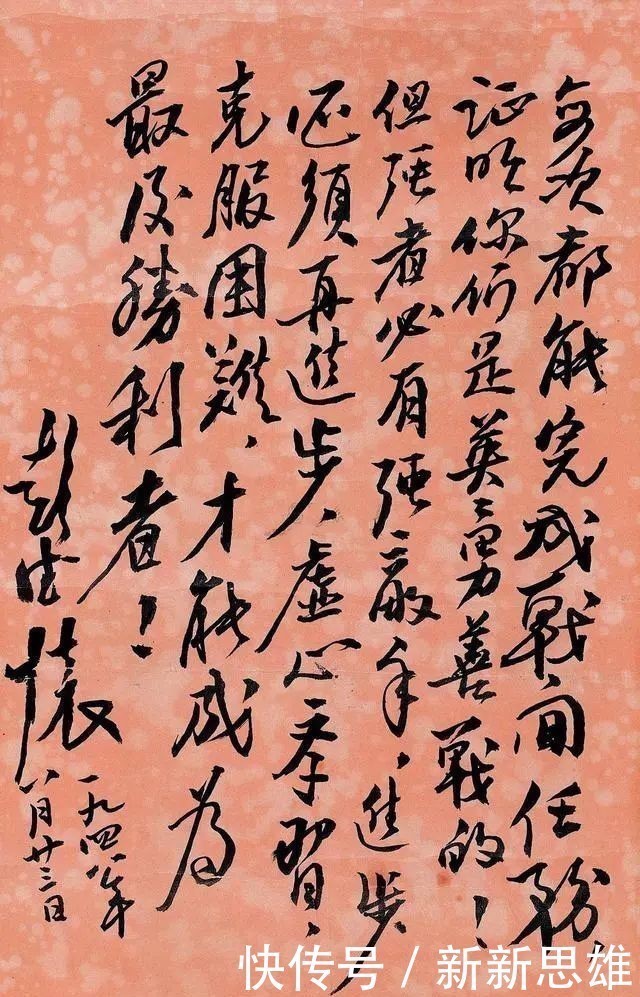 每次都能完成戰鬪任務，
証明你们是英勇善戰的！
但强者必有强敵手，進步
还須再進步、虚心学習，
克服困难、才能成為
最后勝利者！
彭德懷
一九四八年
八月廿三日
快传号 / 新新思雄